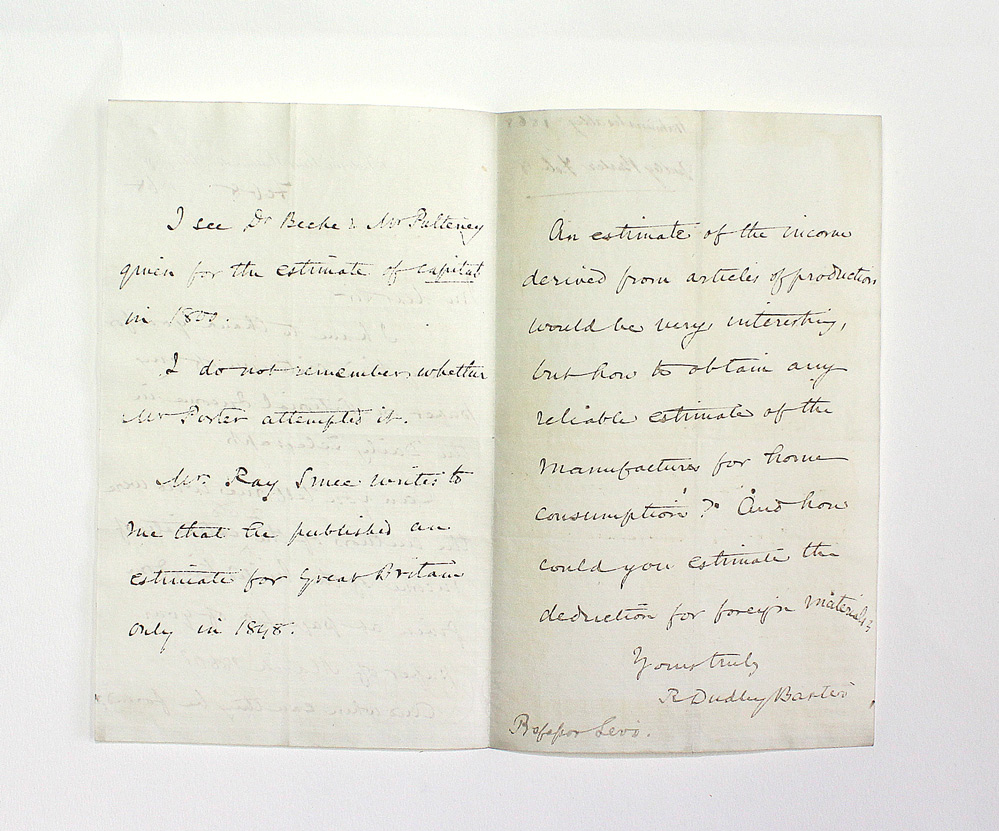 I see Dr Beeke & Mr Pulteney
given for the estimate of capital
in 1800.
I do not remember whether
Mr Porter attempted it.
Mr. Ray Smee writes to
me that he published an
estimate for Great Britain
only in 1848.
An estimate of the income
derived from articles of production
would be very interesting,
but how to obtain any
reliable estimate of the
manufactures for home
consumption? And how
could you estimate the
deduction for foreign materials?
Yours truly
R Dudley Baxter
Professor Levi.